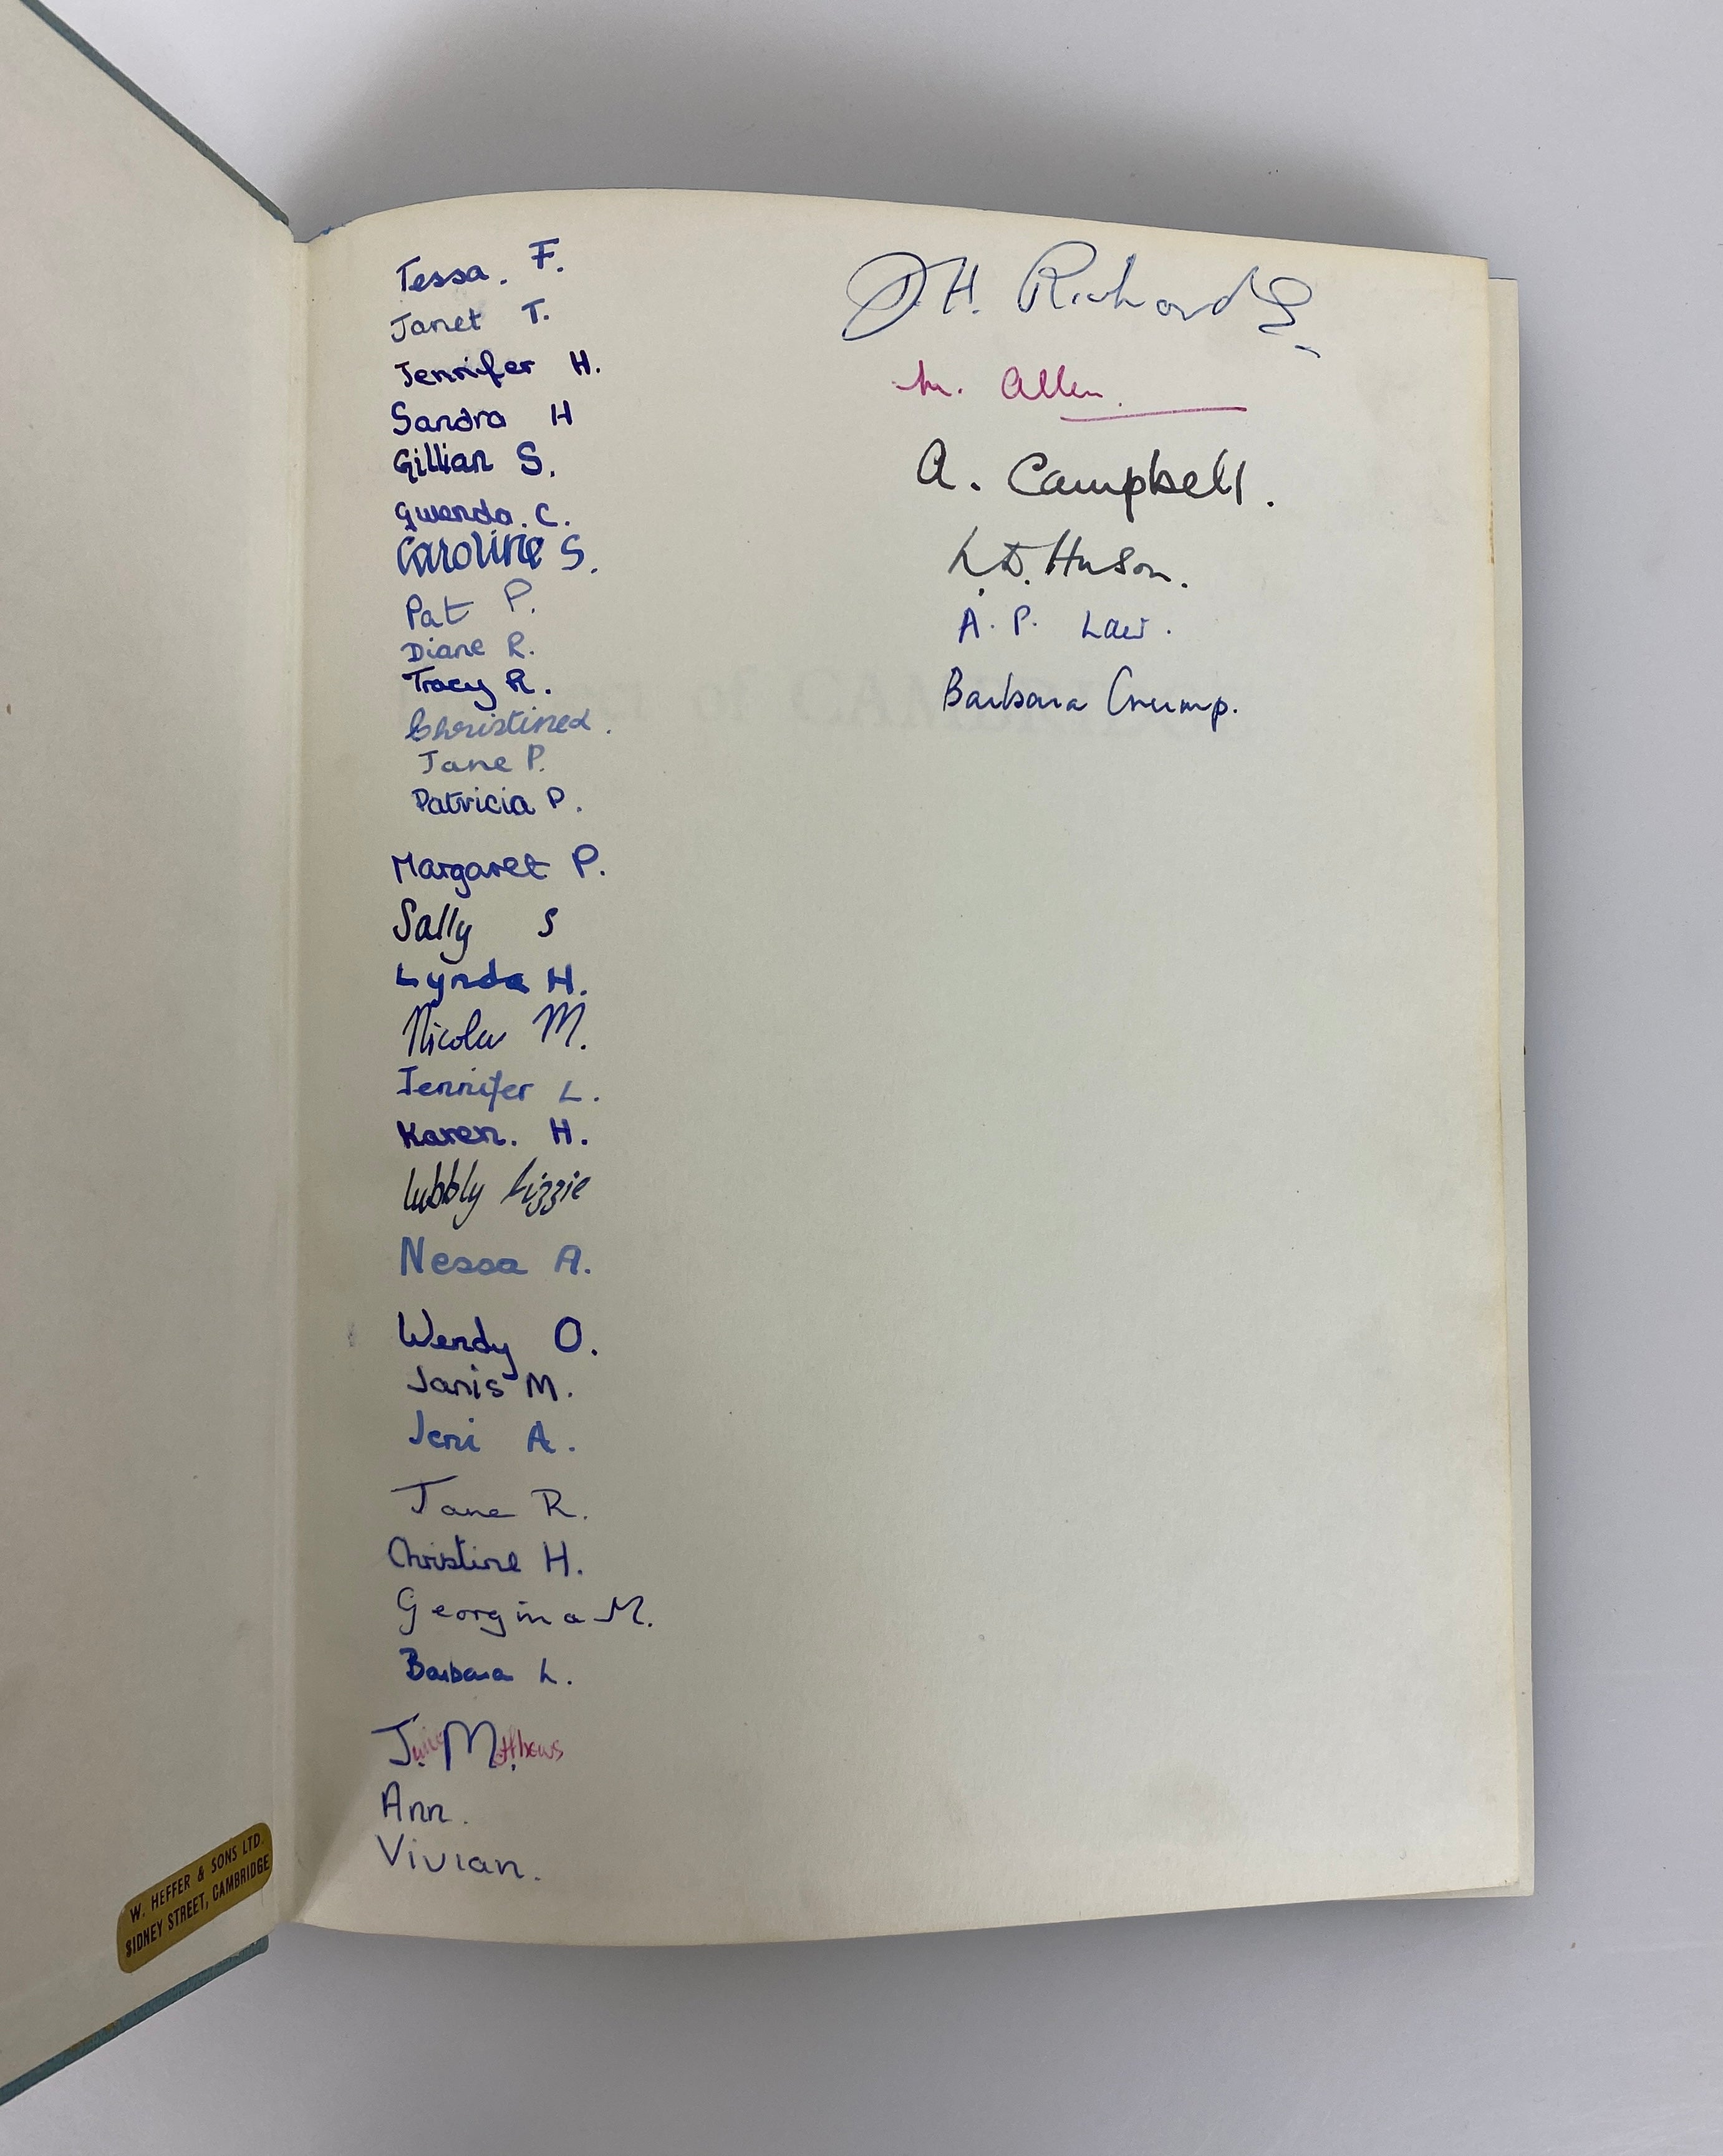 Tessa. F.
Janet T.
Jennifer H.
Sandra H
Gillian S.
Gwenda. C.
Caroline S.
Pat P.
Diane R.
Tracy R.
Christine d.
Jane P.
Patricia P.
Margaret P.
Sally S
Lynda H.
Nicola M.
Jennifer L.
Karen. H.
Lubbly Lizzie
Nessa A.
Wendy O.
Janis M.
Jeni A.
Jane R.
Christine H.
Georgina M.
Barbara L.
Julie Mathews
Ann.
Vivian.
D.H. Richards
M. Allen.
A. Campbell.
L.D. Huson.
A. P. Law.
Barbara Crump.
W. HEFFER & SONS LTD.
SIDNEY STREET, CAMBRIDGE